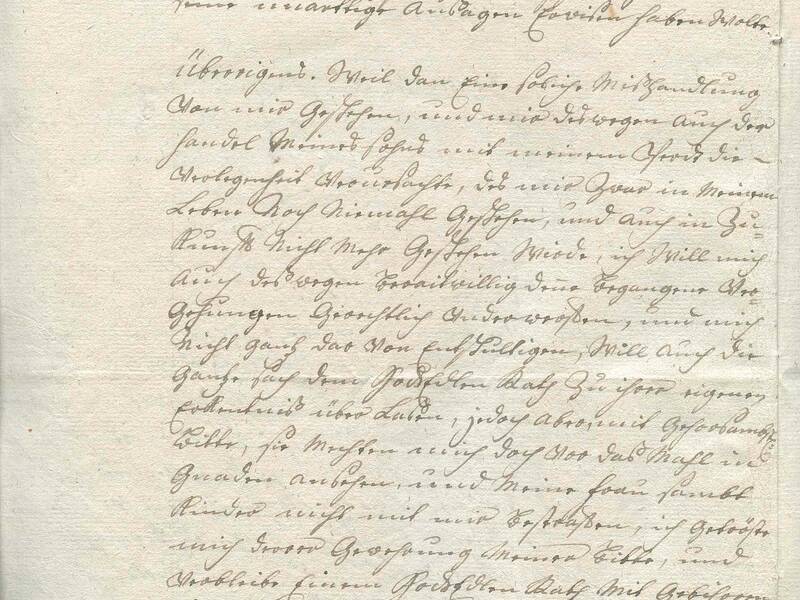 seine unarttige Aussagen Erwisen haben Wolte.
Überrigens. Weil dan Eine solche Mishandlung
Von mir Geschehen, und mir deswegen auch der
handel Meines sohns mit meinem Pferdt die
Verlegenheit Verursachte, des mir Zwar in Meinem
Leben Noch Niemahl Geschehen, und auch in Zu-
Kunfft Nicht Mehr Geschehen Wirde, ich Will mich
auch des wegen Beraitwillig dene Begangene Ver-
Gehungen Gerechtlich Underwerffen, und mich
Nicht Gantz dar Von Entschultigen, Will auch die
Gantze sach dem HochEdlen Rath Zu ihrer eigenen
Erkentnis über Lasen, jedoch aber, mit Gehorsambster
Bitte, sie Mechten mich doch Vor das Mahl in
Gnaden ansehen, und Meine frau sambt
Kinder nicht mit mir Bestraffen, ich Getröste
mich derer Gewehrung Meiner Bitte, und
Verbleibe Einem HochEdlen Rath Mit Gebihrenden